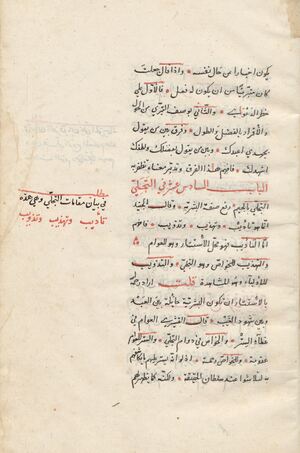 يكون اخبارا من حال نفسه واذا قال جعلت
كان متبريئا من ان يكون له فعل فالاول على
خطر الا ان والثاني بوصف التبري من الحول
والاقرار بالفضل والطول وفرق بين من يقول
بجهدي اعبدك وبين من يقول بفضلك ولطفك
اشهدك فافهم هذا الفرق وتدبر معناه تظفر به
الباب السادس عشر في التجلي
التجلي بالجيم رفع صفة البشرية وقالت الجنيد
انما هو تأديب وتهذيب وتذويب فاعلم
اما التأديب فهو محل الاستتار وهو للعوام
والتهذيب للخواص وهو التجلي والتذويب
للاولياء وهو المشاهدة قلت اراد رحمه الله
بالاستتار ان تكون البشرية حائلة بين العبد
وبين شهود الغيب قال القشيري العوام في
غطاء الستر والخواص في دوام التجلي والستر للعوام
عقوبة وللخواص رحمة اذ لولا يسترهم ما يكاشفهم
به لتلاشوا عند سلطان الحقيقة ولكنه كما يظهر لهم
في بيان مقامات التجلي وهي هذه
تأديب وتهذيب وتذويب